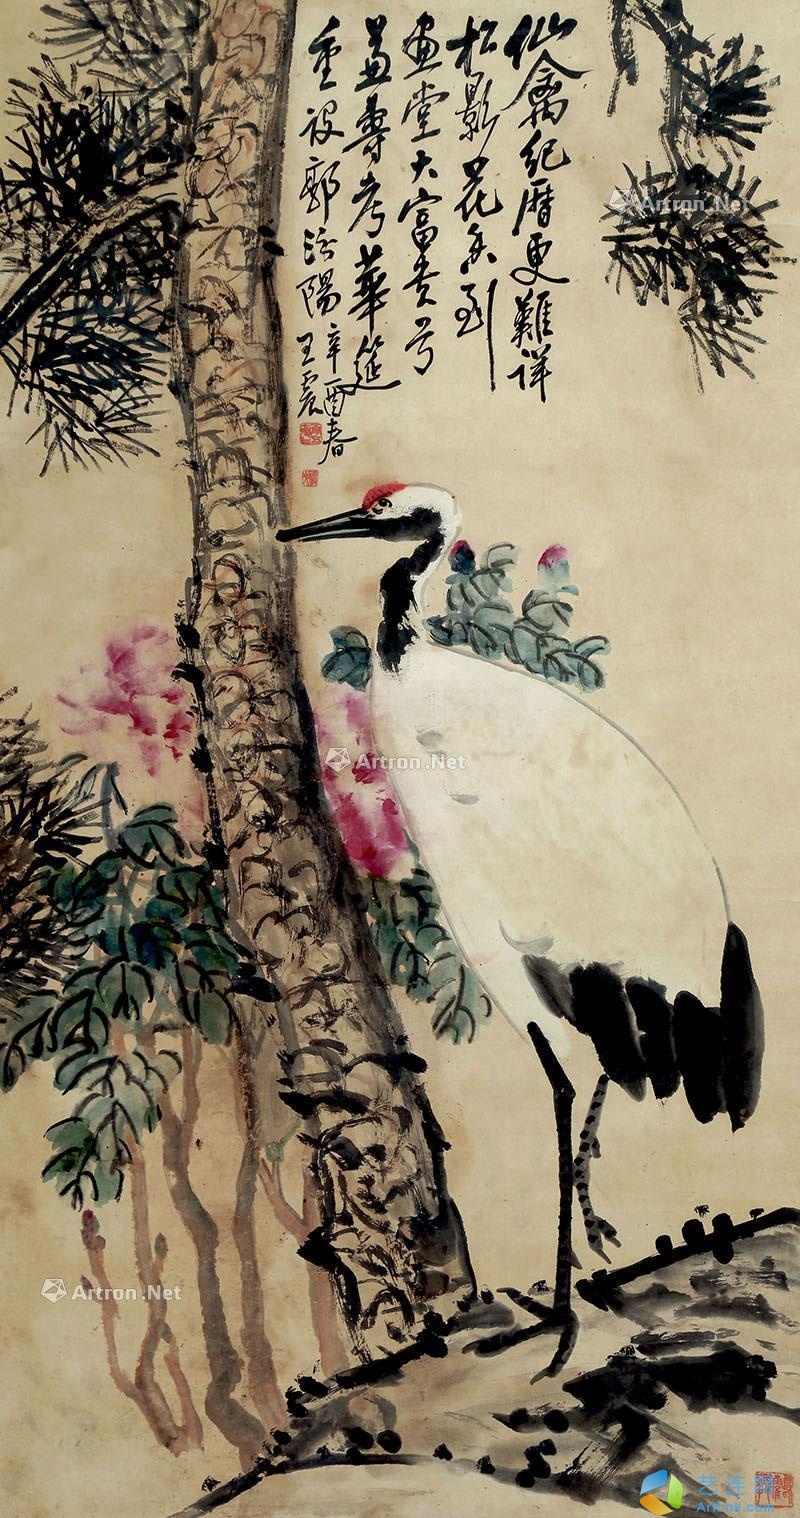 仙禽紀曆更難詳
松影花香到
畫堂大富貴兮
益壽考華筵
重設郭汾陽
辛酉春
王震
Artron.Net
Artron.Net
Artron.Net
Artron.Net
艺连网